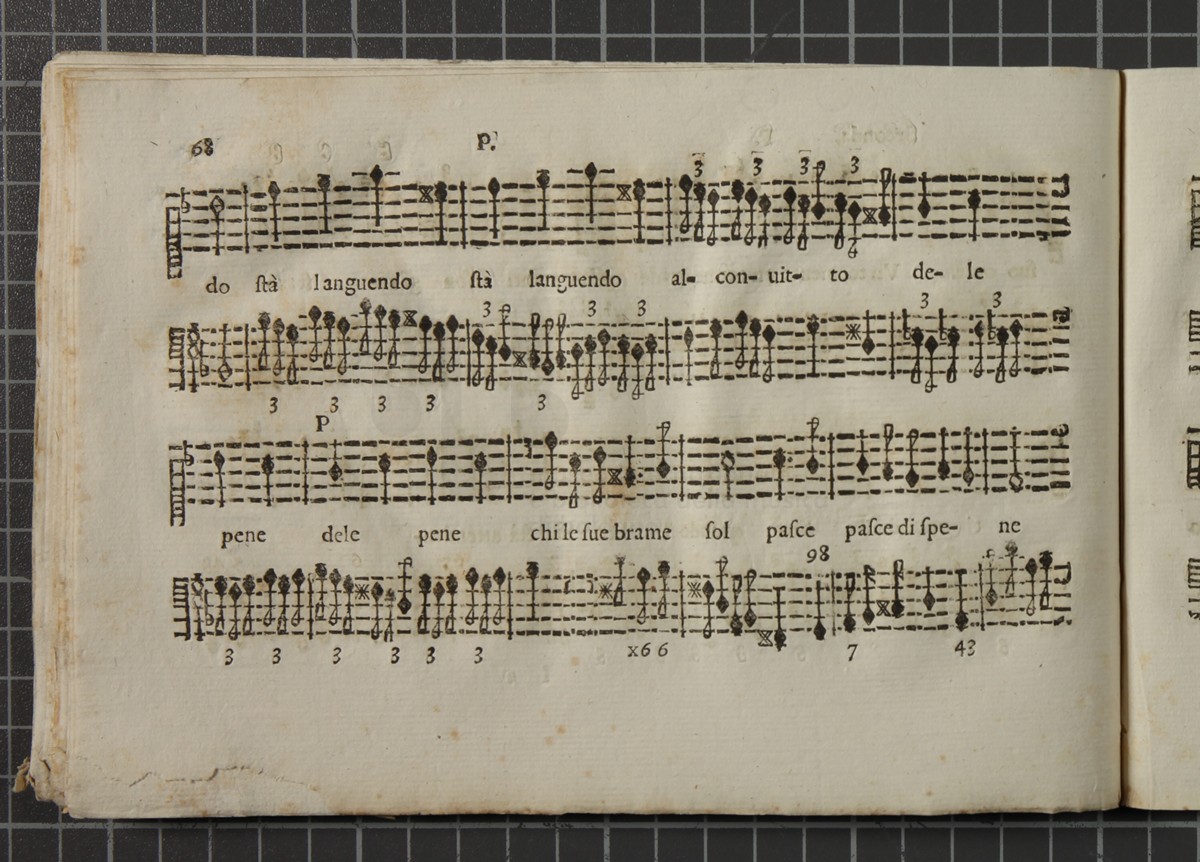 68 P.
3 3 3 3
do ſtà languendo ſtà languendo al- con- uit- to de- le
3 3 3 3 3
3 3 3 3 3
P
pene dele pene chi le ſue brame ſol paſce paſce di ſpe- ne
98
3 3 3 3 3 3 x6 6 7 43